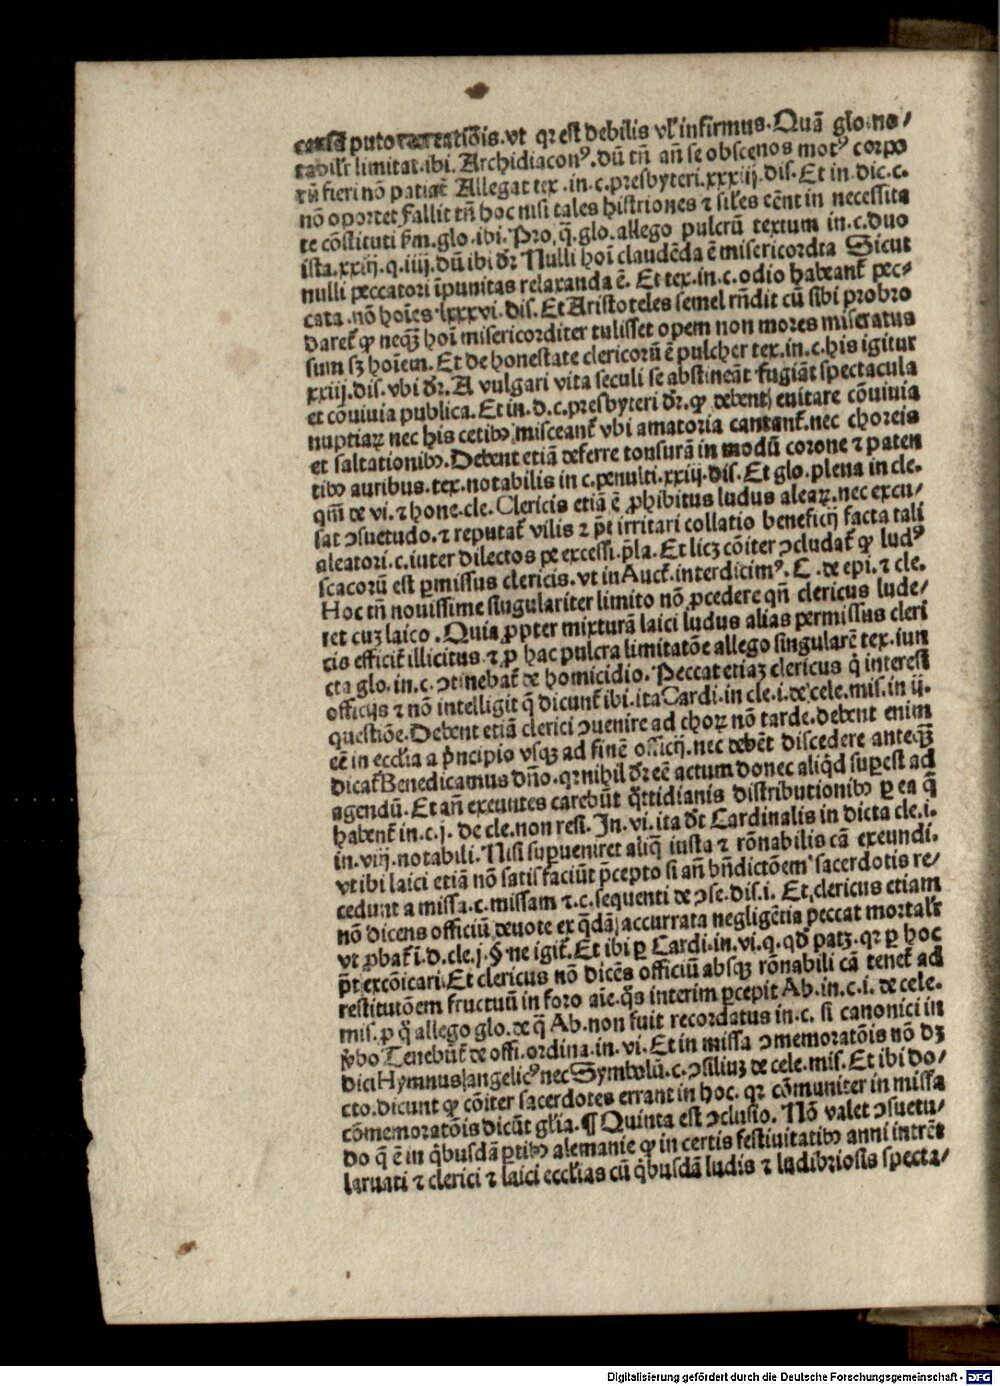 causa puto recreationis. vt qr est debilis vl' infirmus. Quã glo. no/
tabilr̃ limitat. ibi. Archidiaconꝰ. dũ tñ añ se obscenos motꝰ corpo
rũ fieri nõ patiat̃ Allegat tex. in. c. presbyteri. xxxiij. dis. Et in. dic. c.
nõ oportet Fallit tñ hoc nisi tales histriones ⁊ sil'es cẽnt in necessita
te cõstituti ẜm. glo. ibi. Pro. q̃. glo. allego pulcrũ textum in. c. duo
ista. xxiij. q. iiij. dũ ibi dr̃ Nulli hoĩ claudẽda ẽ misericordia Sicut
nulli peccatori ĩpunitas relaxanda ẽ. Et tex. in. c. odio habeant̃ pec⸗
cata. nõ hoĩes. lxxxvi. dis. Et Aristoteles semel rñdit cũ sibi probro
daret̃ ꝙ nequaꝫ hoĩ misericorditer tulisset opem non mores miseratus
sum sꝫ hoĩem. Et de honestate clericorũ ẽ pulcher tex. in. c. his igitur
xxiij. dis. vbi dr̃. A vulgari vita seculi se abstineãt fugiãt spectacula
et cõuiuia publica. Et in. d. c. presbyteri dr̃. ꝙ debent euitare cõuiuia
nuptiaꝝ nec his cetibꝰ misceant̃ vbi amatoria cantant̃. nec choreis
et saltationibꝰ. Debent etiã deferre tonsurã in modũ corone ⁊ paten
tibꝰ auribus. tex. notabilis in c. penulti. xxiij. dis. Et glo. plena in cle.
qm̃ de vi. ⁊ hone. cle. Clericis etiã ẽ ꝓhibitus ludus aleaꝝ. nec excu/
sat ↄsuetudo. ⁊ reputat̃ vilis ⁊ p̃t irritari collatio beneficij facta tali
aleatori. c. inter dilectos de excessi. p̃la. Et licꝫ cõiter ↄcludat̃ ꝙ ludꝰ
scacorũ est ꝑmissus clericis. vt in Auct̃. interdicimꝰ. C. de epi. ⁊ cle.
Hoc tñ nouissime singulariter limito nõ ꝓcedere qñ clericus lude/
ret cuꝫ laico. Quia ꝓpter mixturã laici ludus alias permissus cleri
cis efficit̃ illicitus. ⁊ ꝓ hac pulcra limitatõe allego singularẽ tex. iun
cta glo. in. c. ↄtinebat̃ de homicidio. Peccat etiaꝫ clericus q̇ interest
officijs ⁊ nõ intelligit q̃ dicunt̃ ibi. ita Cardi. in cle. i. de cele. mis. in ij.
questiõe. Debent etiã clerici ↄuenire ad choꝝ nõ tarde. debent enim
eẽ in eccl'ia a p̃ncipio vsqꝫ ad finẽ officij. nec debẽt discedere anteq̃ꝫ
dicat̃ Benedicamus dño. qr nihil dr̃ eẽ actum donec aliq̇d suꝑest ad
agendũ. Et añ exeuntes carebũt q̃ttidianis distributionibꝰ ꝑ ea q̃
habent̃ in. c. j. de cle. non resi. In. vi. ita dc̃t Cardinalis in dicta cle. i.
in. viij. notabili. Nisi suꝑueniret aliq̃ iusta ⁊ rõnabilis cã exeundi.
vt ibi laici etiã nõ satisfaciũt p̃cepto si añ bñdictõem sacerdotis re/
cedunt a missa. c. missam ⁊. c. sequenti de ↄse. dis. i. Et clericus etiam
nõ dicens officiũ deuote ex q̃dã accurrata negligẽtia peccat mortalr̃
vt ꝓbat̃ ĩ. d. cle. j. § ne igit̃. Et ibi ꝑ Cardi. in. vi. q. qd̃ patꝫ. qr ꝑ hoc
p̃t excõicari. Et clericus nõ dicẽs officiũ absqꝫ rõnabili cã tenet̃ ad
restitutõem fructuũ in foro aĩe. q̃s interim ꝑcepit Ab. in. c. i. de cele.
mis. ꝓ q̃ allego glo. de q̃ Ab. non fuit recordatus in. c. si canonici in
ꝟbo Tenebũt̃ de offi. ordina. in. vi. Et in missa ↄmemoratõis nõ dꝫ
dici Hymnus angelicꝰ nec Symbolũ. c. ↄsiliuꝫ de cele. mis. Et ibi do/
cto. dicunt ꝙ cõiter sacerdotes errant in hoc. qr cõmuniter in missa
cõmemoratõis dicũt gl'ia. ¶ Quinta est ↄclusio. Nõ valet ↄsuetu/
do q̃ ẽ in q̇busdã ꝑtibꝰ alemanie ꝙ in certis festiuitatibꝰ anni intrẽt
laruati ⁊ clerici ⁊ laici eccl'ias cũ q̇busdã ludis ⁊ ludibriosis specta/
Digitalisierung gefördert durch die Deutsche Forschungsgemeinschaft - DFG